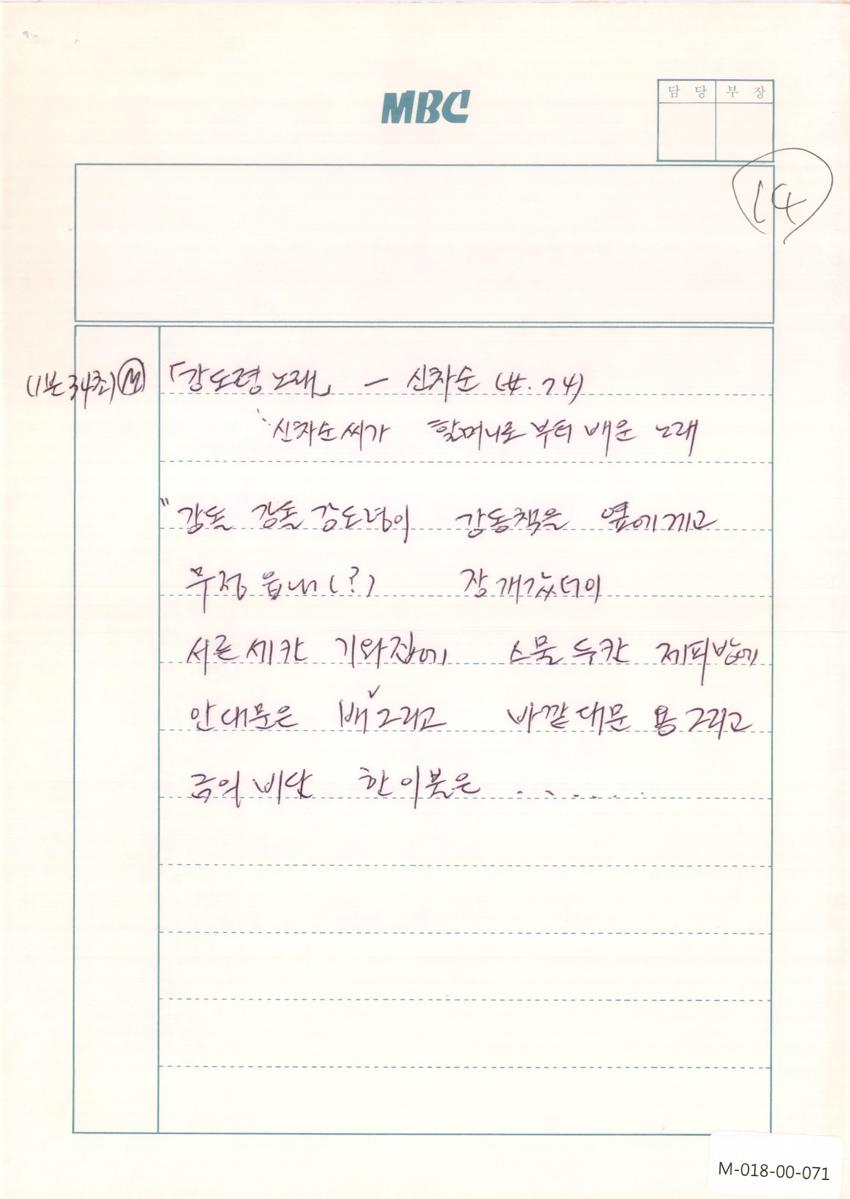 MBC
담 당 부 장
14
(1분 34초) Ⓜ 「강도령 노래」 — 신차순 (女. 74)
신차순씨가 할머니로부터 배운 노래
"강돌 강돌 강도령이 강동책을 옆에 끼고
무정 읍내(?) 장개갔더이
서른 세칸 기와집에 스물 두칸 제피방에
안대문은 배 그리고 바깥대문 용그리고
금의 비단 한 이불은 . . . . . .
M-018-00-071